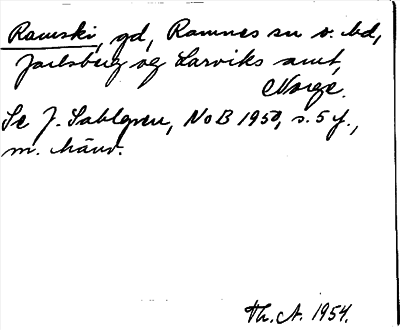 Ramski, gd, Ramnes sn o. hd,
Jarlsberg og Larviks amt,
Norge.
Se J. Sahlgren, NoB 1950, s. 5 f.,
m. hänv.
Th. A. 1954.